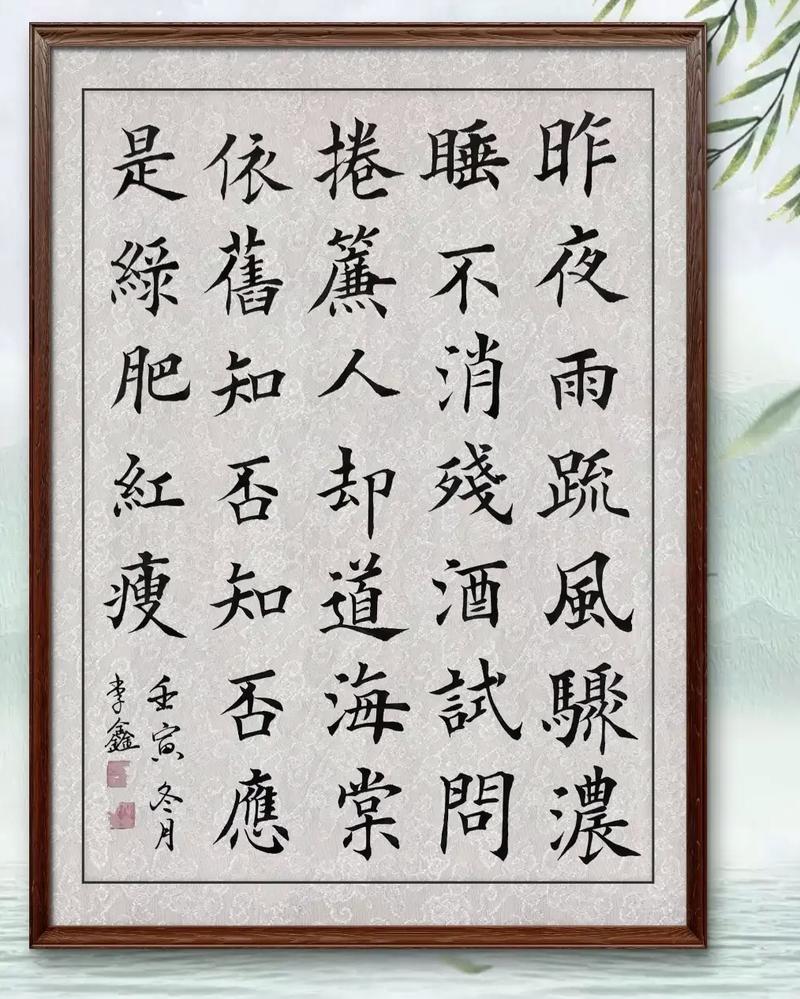 昨夜雨疏風驟濃
睡不消殘酒試問
捲簾人却道海棠
依舊知否知否應
是綠肥紅瘦
壬寅冬月
李鑫